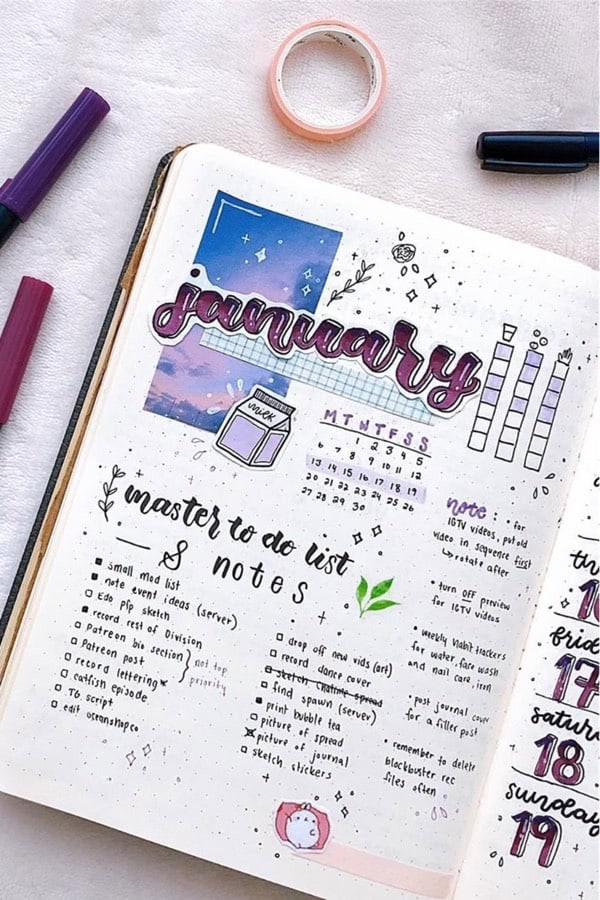 january
milk
M T W T F S S
1 2 3 4 5
6 7 8 9 10 11 12
13 14 15 16 17 18 19
20 21 22 23 24 25 26
27 28 29 30
note: · for
IGTV videos, put old
video in sequence first
↳ rotate after
· turn OFF preview
for IGTV videos
· weekly habit trackers
for water, face wash
and nail care, iron
· post journal cover
for a filler post
· remember to delete
blockbuster rec
files often
master to do list
& notes
small mod list
note event ideas (server)
Edo pfp sketch
record rest of Division
Patreon bio section
Patreon post
record lettering
catfish episode
TG script
edit oceanshopco
not top
priority
drop off new vids (art)
record dance cover
sketch spread
find spawn (server)
print bubble tea
picture of spread
picture of journal
sketch stickers
friday
17
18
sunday
19